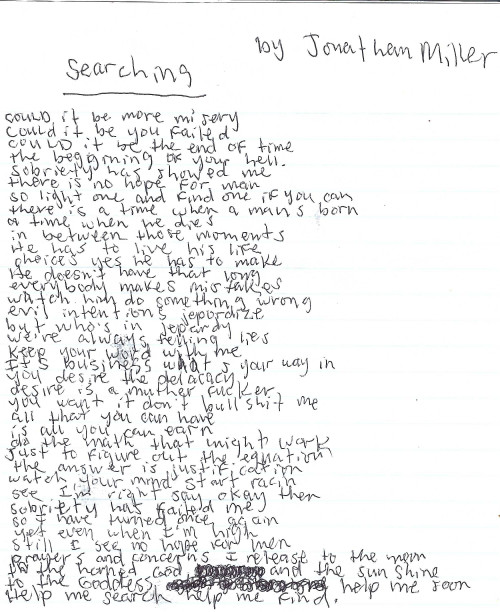 by Jonathan Miller
Searching
could it be more misery
could it be you failed
could it be the end of time
the beggining of your hell.
Sobriety has showed me
there is no hope for man
so light one and find one if you can
there is a time when a man's born
a time when he dies
in between those moments
He has to live his life
choices yes he has to make
He doesn't have that long
everybody makes mistakes
watch him do something wrong
evil intentions jepordize
but who's in jepardy
we're always telling lies
Keep your word with me
It's business what's your way in
you desire the
desire is a muther fucker
you want it don't bullshit me
all that you can have
is all you can earn
do the math that might work
just to figure out the equation
the answer is justification
watch your mind start racin
see I'm right say okay then
sobriety has failed me
so I have turned once again
yet even when I'm high
still I see no hope for men
prayers and concerns I release to the moon
to the horned God and the sun shine
to the Goddess help me soon
Help me search help me find.